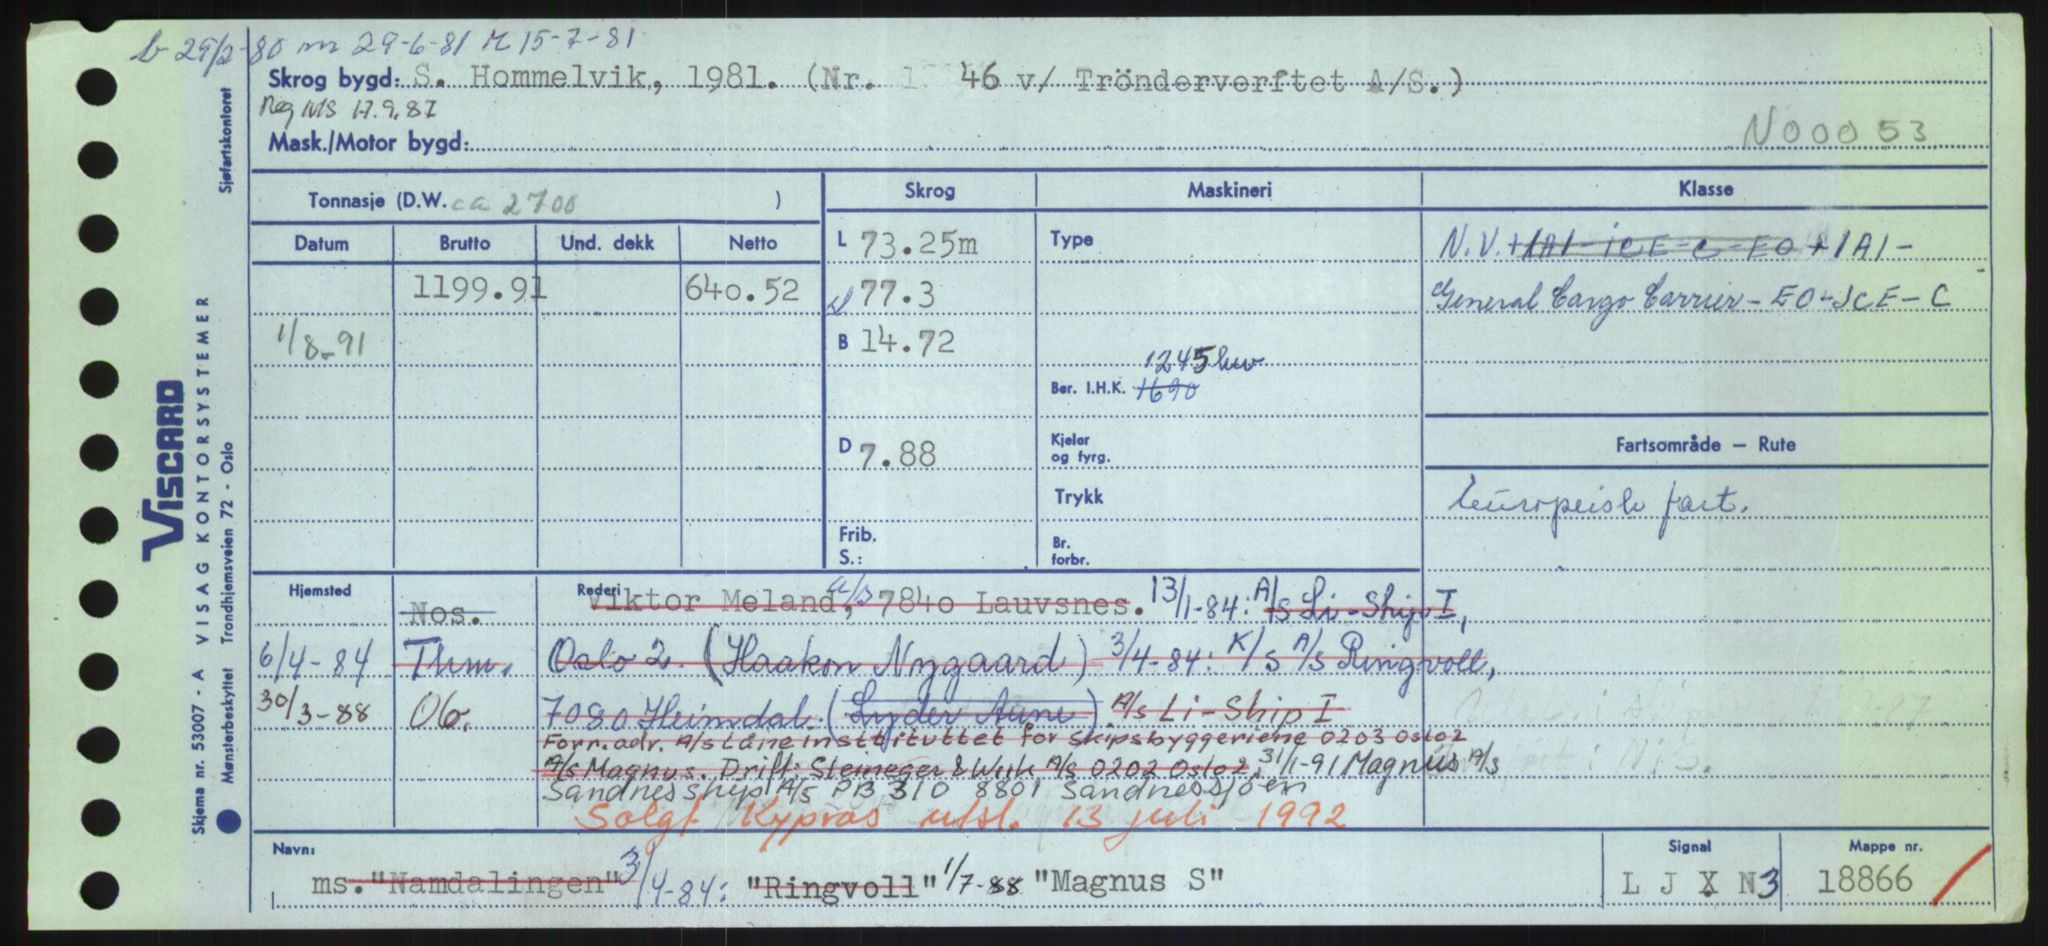 b 29/2-80 m 29-6-81 M 15-7-81
Skrog bygd: S. Hommelvik, 1981. (Nr. 46 v/ Trönderverftet A/S.)
Reg NIS 17.9.87
Mask./Motor bygd:
N00053
Tonnasje (D.W. ca 2700 )
Skrog Maskineri Klasse
Datum Brutto Und. dekk Netto
L 73.25m Type N.V. +1A1-ICE-C-EO +1A1-
1199.91 640.52 77.3 General Cargo Carrier-EO-ICE-C
1/8-91 B 14.72
1245 kw
Ber. I.H.K. 1690
Fartsområde — Rute
D 7.88 Kjeler og fyrg.
Trykk Europeisk fart.
Frib. S.: Br. forbr.
Hjemsted Nos. Rederi Viktor Meland A/S, 7840 Lauvsnes. 13/1-84: A/S Li-Ship I,
6/4-84 Thm. Oslo 2. (Haakon Nygaard) 3/4-84: K/S A/S Ringvoll,
30/3-88 Ob. 7080 Heimdal. (Lyder Aune) A/S Li-Ship I
Forr.adr. A/S Låneinstituttet for Skipsbyggeriene 0203 Oslo 2
A/S Magnus. Drift: Steneger & Wiik A/S 0202 Oslo 2, 31/1-91 Magnus A/S
Sandnesship A/S PB 310 8801 Sandnessjøen
Solgt Kypros utsl. 13 juli 1992
Navn: Signal Mappe nr.
ms. "Namdalingen" 3/4-84: "Ringvoll" 1/7-88 "Magnus S" L J X N 3 18866
Skjema nr. 53007 - A VISAG KONTORSYSTEMER Sjøfartskontoret
Mønsterbeskyttet Trondhjemsveien 72 - Oslo
VISCARD